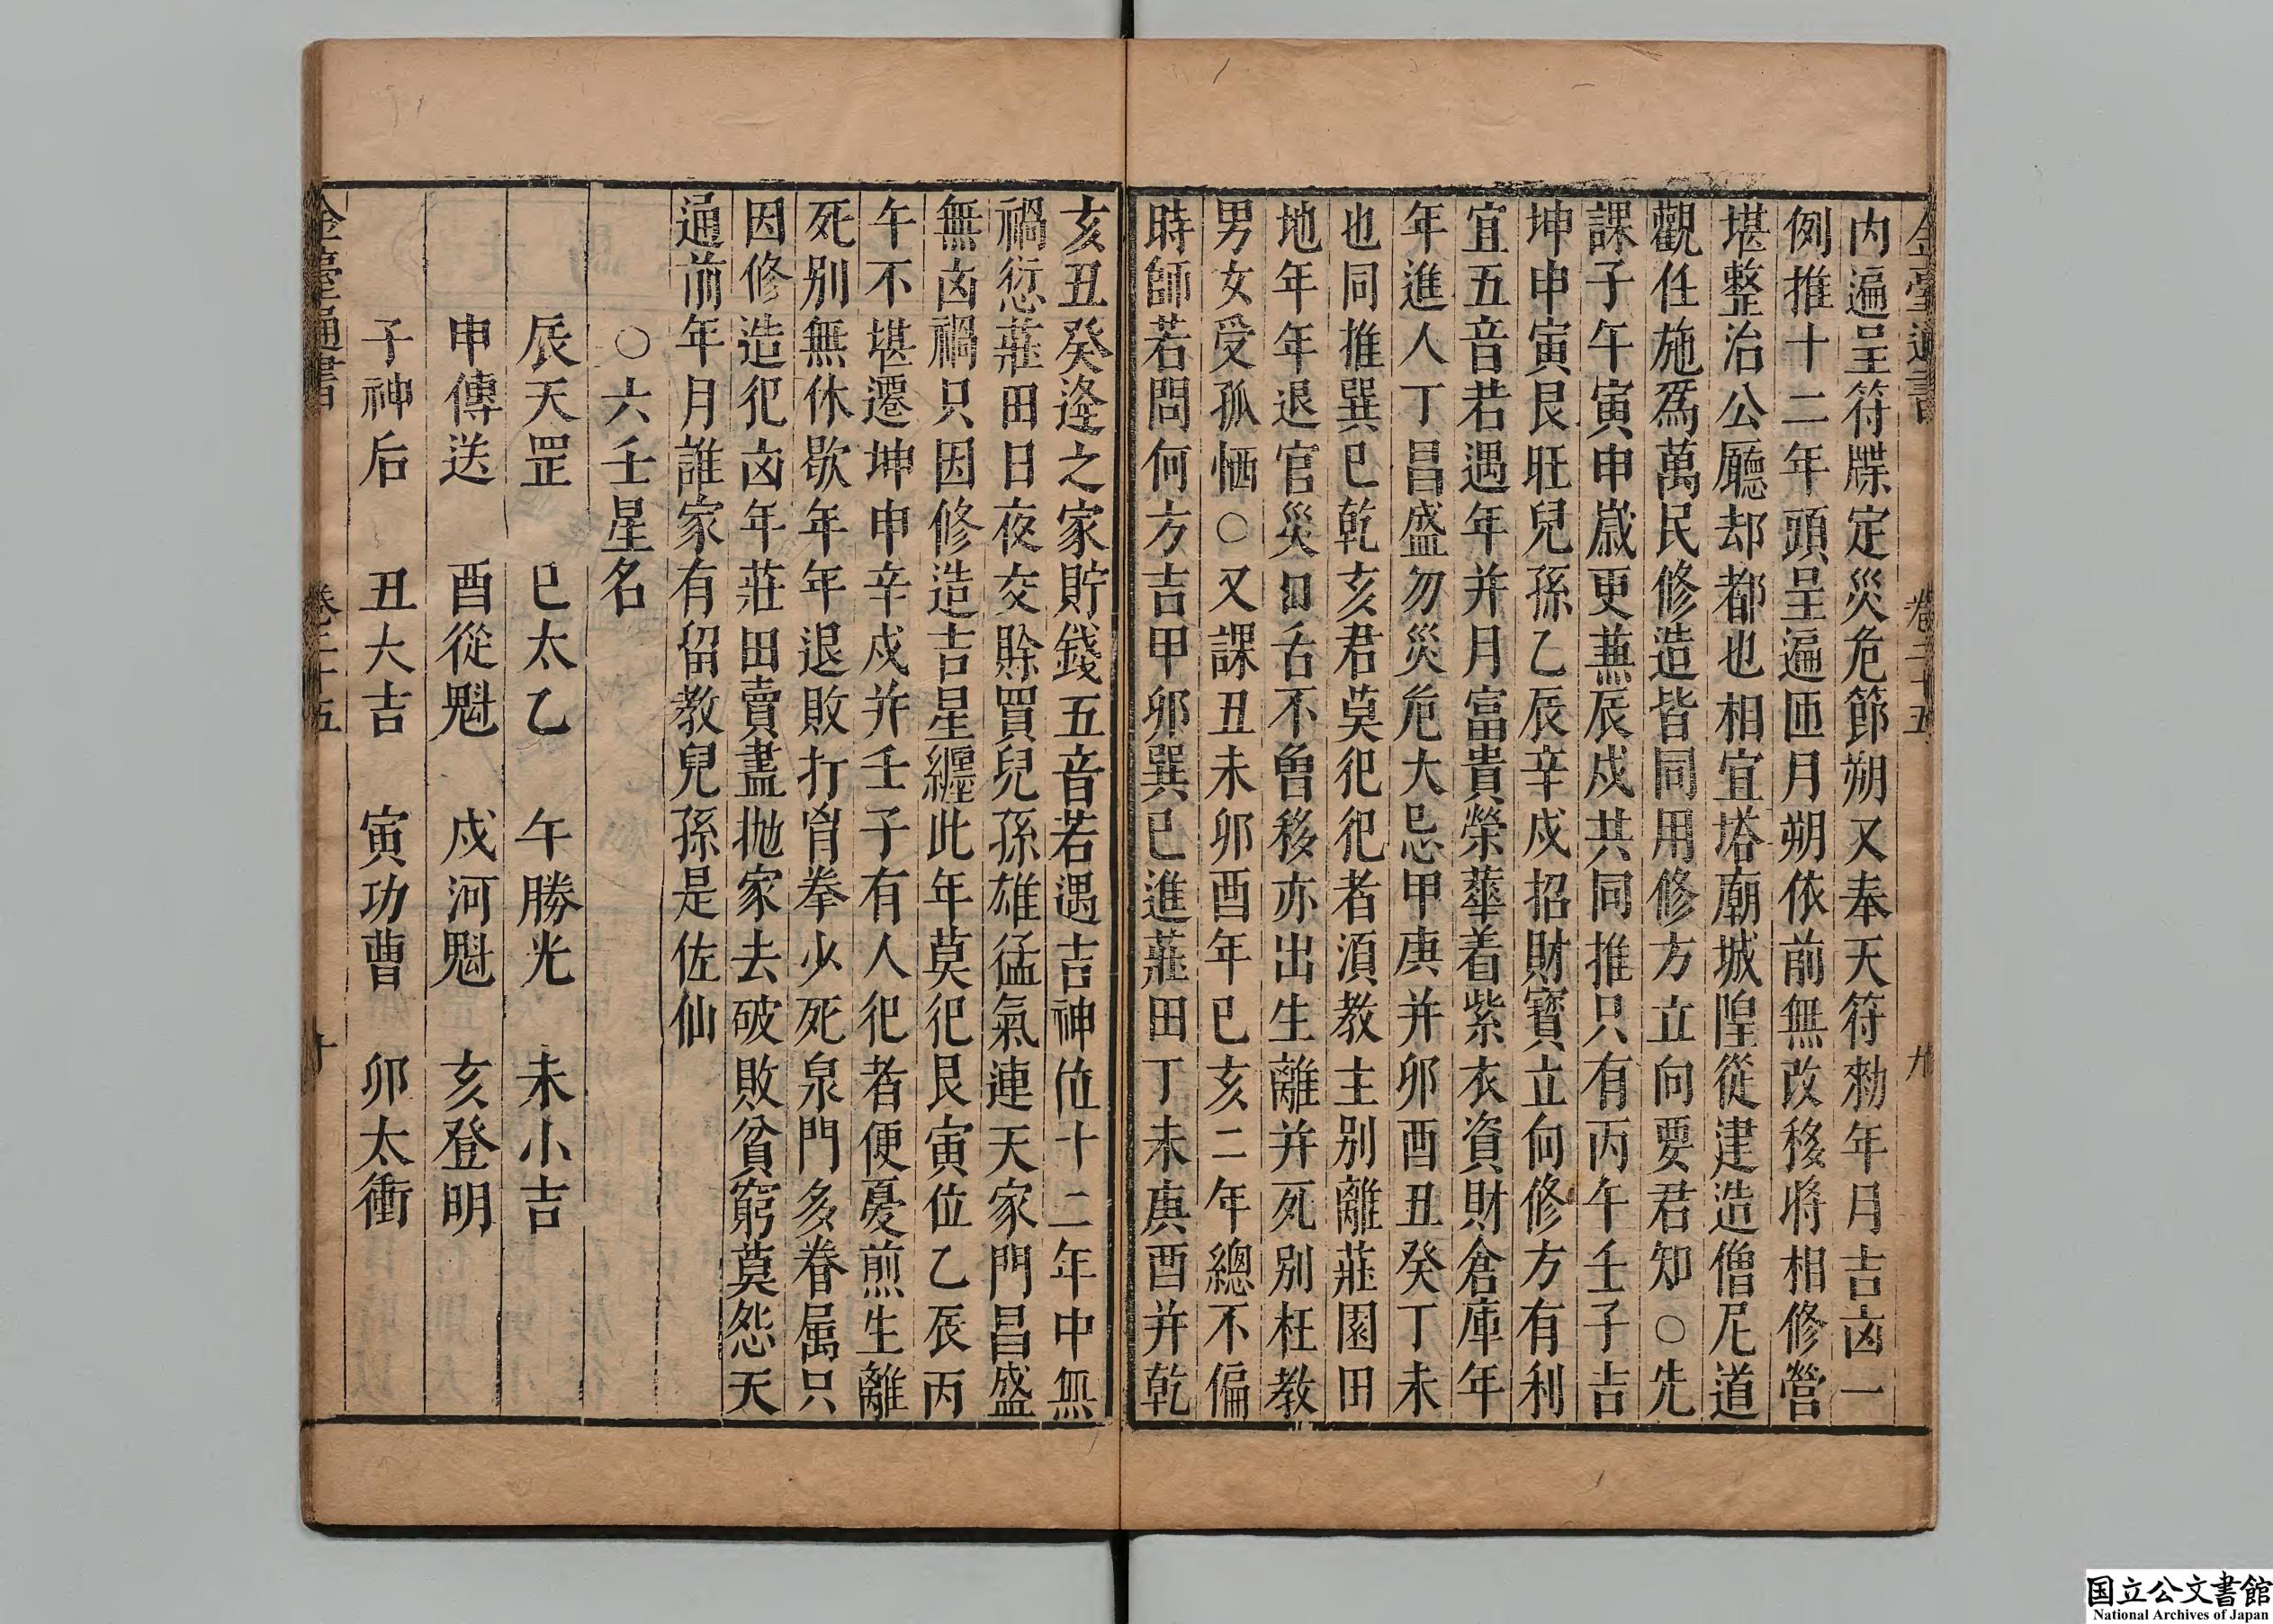 金臺通書 卷三十五 九
內遍呈符牒定災危節朔又奉天符勑年月吉凶一
例推十二年頭呈遍匝月朔依前無改移將相修營
堪整治公廳却都也相宜塔廟城隍從建造僧尼道
觀任施爲萬民修造皆同用修方立向要君知○先
課子午寅申歲更兼辰戌共同推只有丙午壬子吉
坤申寅艮旺兒孫乙辰辛戌招財寶立向修方有利
宜五音若遇年并月富貴榮華着紫衣資財倉庫年
年進人丁昌盛勿災危大忌甲庚并卯酉丑癸丁未
也同推巽巳乾亥君莫犯犯者須教主別離莊園田
地年年退官災口舌不曾移亦出生離并死別枉教
男女受孤恓○又課丑未卯酉年巳亥二年總不偏
時師若問何方吉甲卯巽巳進莊田丁未庚酉并乾
亥丑癸逢之家貯錢五音若遇吉神位十二年中無
禍愆莊田日夜交賖買兒孫雄猛氣連天家門昌盛
無凶禍只因修造吉星纏此年莫犯艮寅位乙辰丙
午不堪遷坤申辛戌并壬子有人犯者便憂煎生離
死別無休歇年年退敗打肖拳少死泉門多眷属只
因修造犯凶年莊田賣盡拋家去破敗貧窮莫怨天
通前年月誰家有留教兒孫是佐仙
○六壬星名
辰天罡 巳太乙 午勝光 未小吉
申傳送 酉從魁 戌河魁 亥登明
子神后 丑大吉 寅功曹 卯太衝
金臺通書 卷三十五 十
国立公文書館
National Archives of Japan